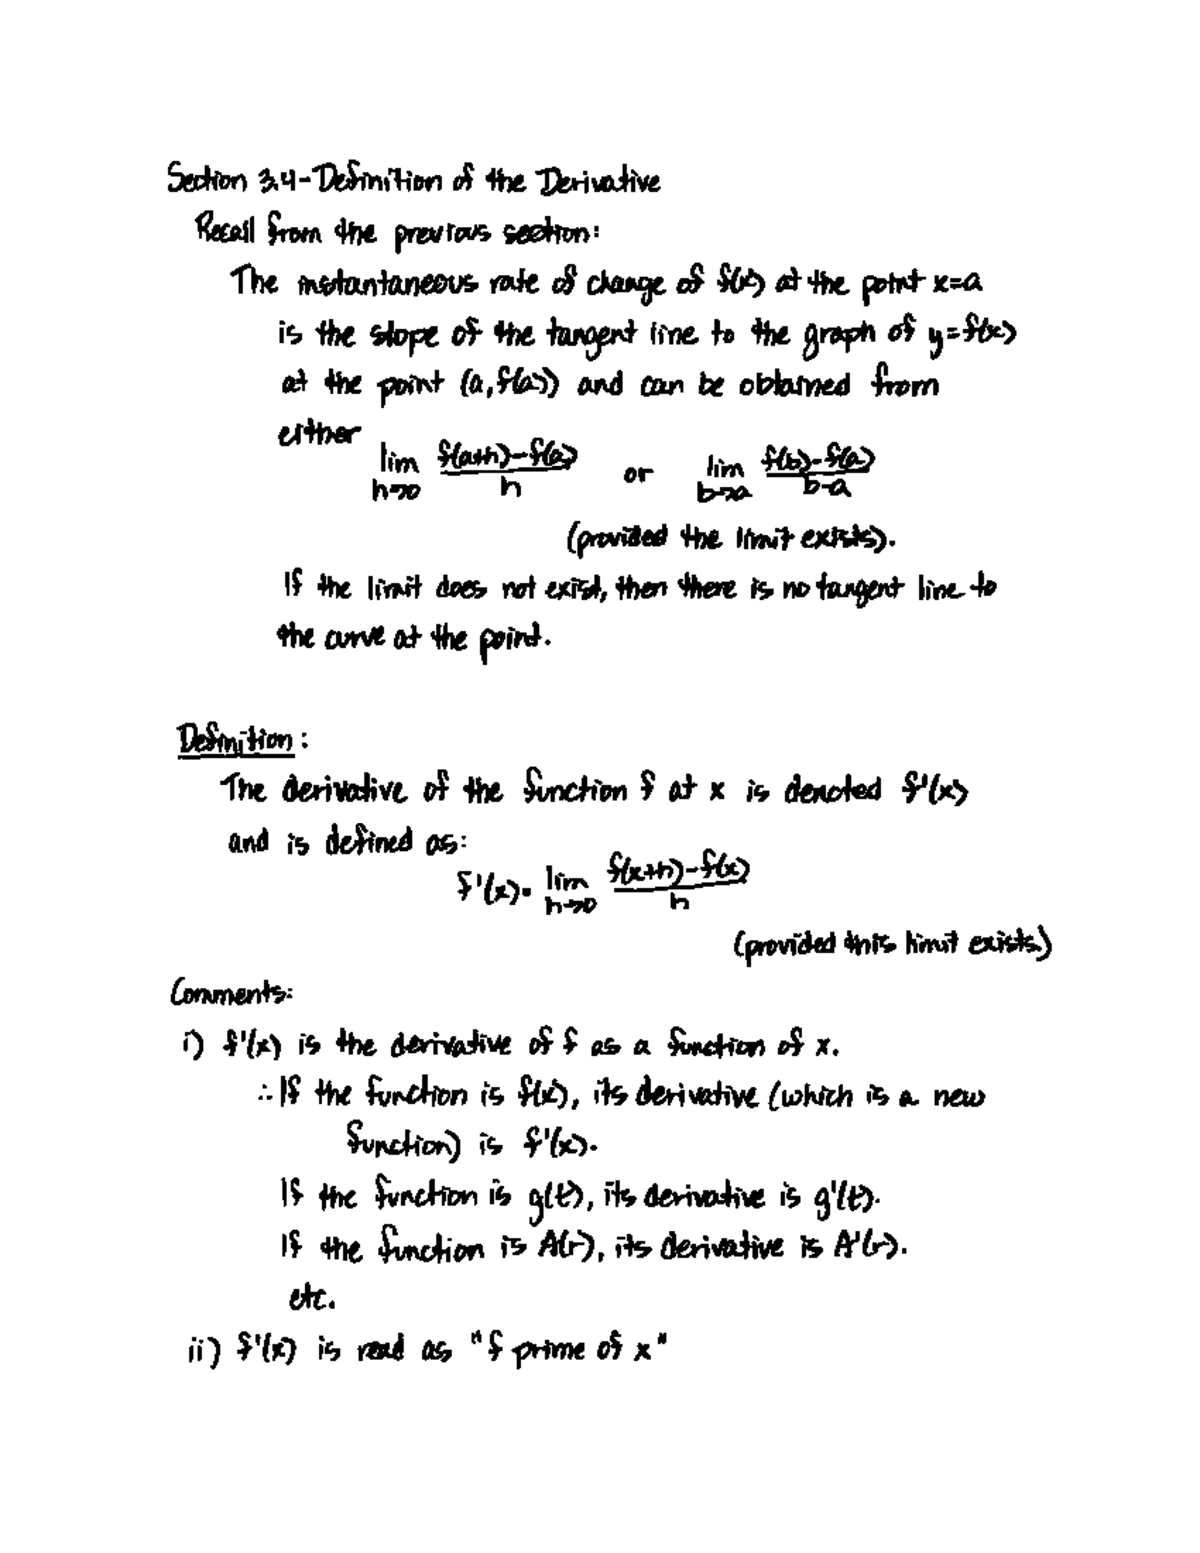 Section 3.4-Definition of the Derivative
Recall from the previous section:
The instantaneous rate of change of f(x) at the point x=a
is the slope of the tangent line to the graph of y=f(x)
at the point (a,f(a)) and can be obtained from
either
lim h→0 f(a+h)-f(a)/h or lim b→a f(b)-f(a)/b-a
(provided the limit exists).
If the limit does not exist, then there is no tangent line to
the curve at the point.
Definition:
The derivative of the function f at x is denoted f'(x)
and is defined as:
f'(x)= lim h→0 f(x+h)-f(x)/h
(provided this limit exists)
Comments:
i) f'(x) is the derivative of f as a function of x.
∴ If the function is f(x), its derivative (which is a new
function) is f'(x).
If the function is g(t), its derivative is g'(t).
If the function is A(r), its derivative is A'(r).
etc.
ii) f'(x) is read as "f prime of x"